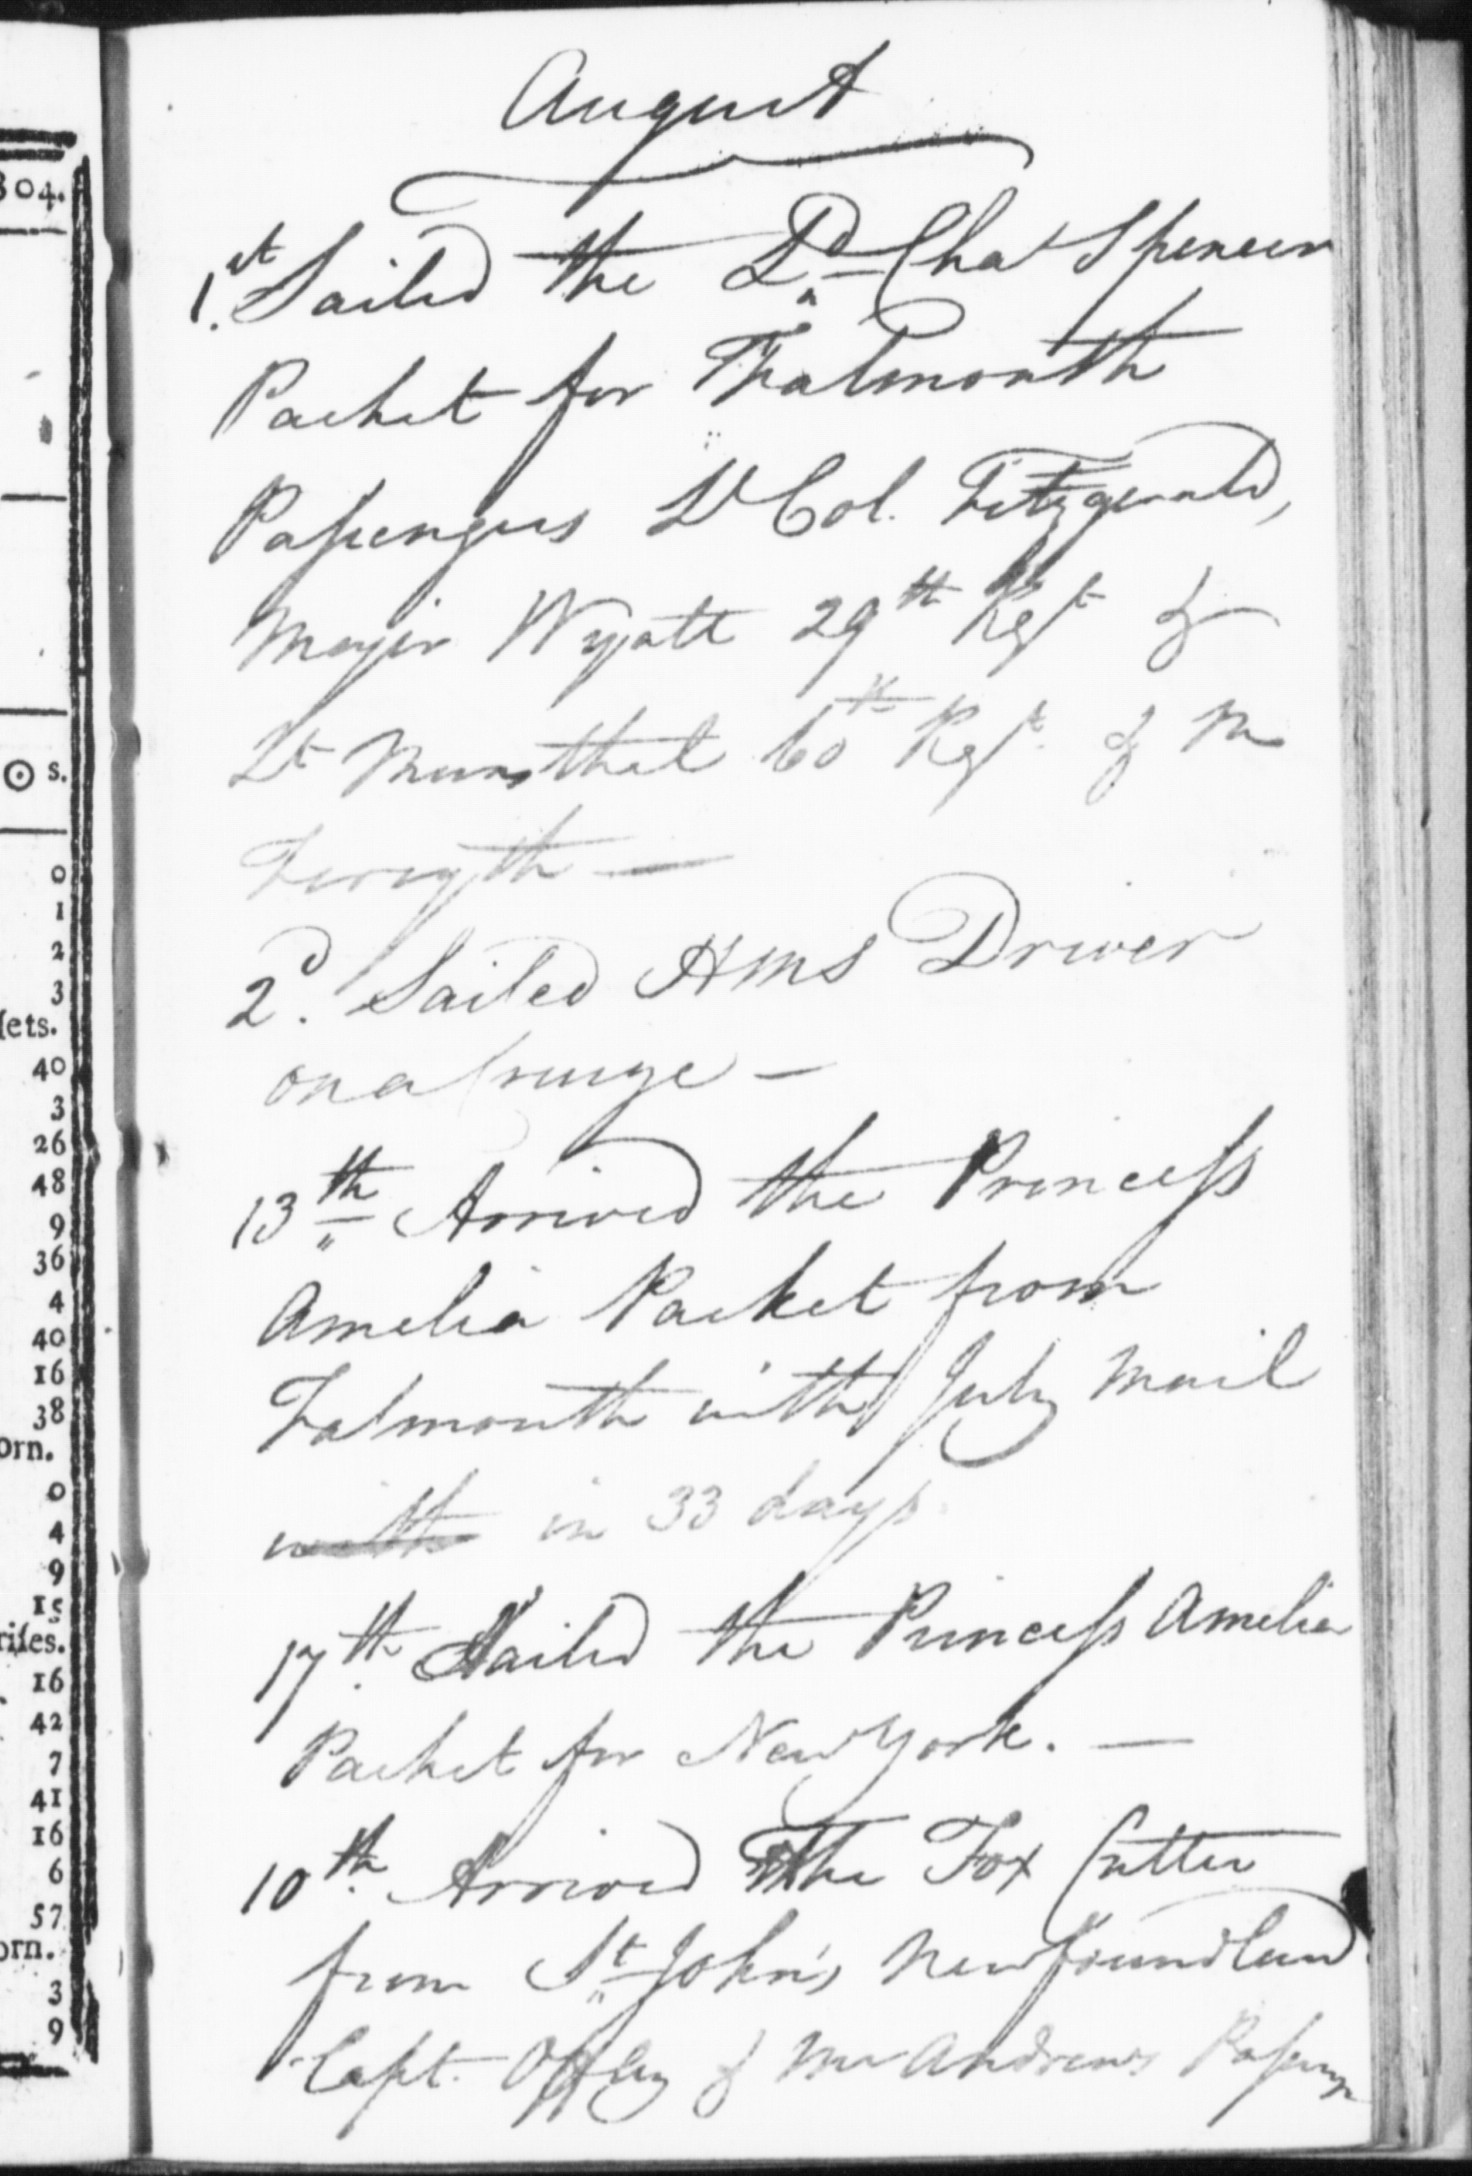 804.
⊙ s.
0
1
2
3
ſets.
40
3
26
48
9
36
4
40
16
38
orn.
0
4
9
15
riſes.
16
42
7
41
16
6
57
orn.
3
9
August
1st. Sailed the Ld Chas Spencer
Packet for Falmouth
Paſsengers Lt Col. Fitzgerald,
Major Wyatt 29th Regt &
Lt 60th Regt. & Mr
Forsyth —
2d. Sailed HMS Driver
on a Cruize —
13th Arrived the Princeſs
Amelia Packet from
Falmouth with July Mail
with in 33 days
17th. Sailed the Princeſs Amelia
Packet for New York. —
10th. Arrived The Fox Cutter
from St John's Newfoundland
Capt. & Mr Andrews